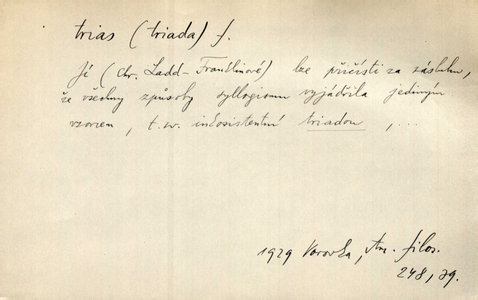 trias (triada) f.
Jí (Chr. Ladd-Franklinové) lze přičísti za zásluhu,
že všechny způsoby syllogismu vyjádřila jediným
vzorcem, t. zv. inkosistentní triadou, ...
1929 Vorovka, Am. filos.
248, 29.